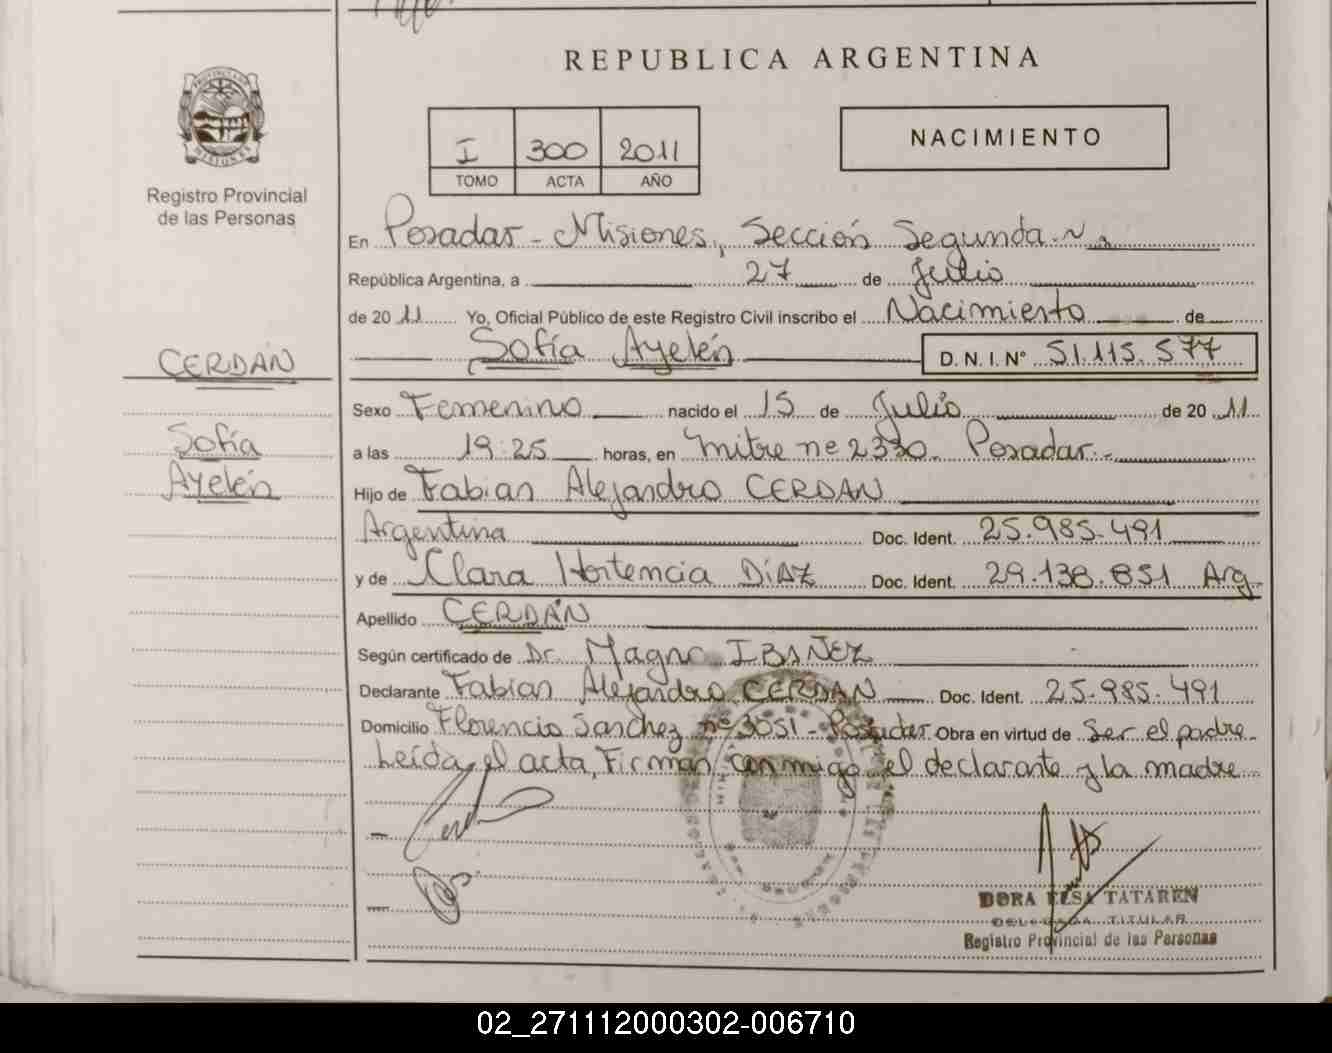 REPUBLICA ARGENTINA
PROVINCIA DE
MISIONES
Registro Provincial
de las Personas
I 300 2011
TOMO ACTA AÑO
NACIMIENTO
En Posadas - Misiones, Sección Segunda.
República Argentina, a 27 de Julio
de 2011 Yo, Oficial Público de este Registro Civil inscribo el Nacimiento de
Sofía Ayelén D.N.I.Nº 51.115.577
CERDÁN
Sofía
Ayelén
Sexo Femenino nacido el 15 de Julio de 2011
a las 19:25 horas, en Mitre nº 2330. Posadas.-
Hijo de Fabian Alejandro CERDAN
Argentina Doc. Ident. 25.985.491
y de Clara Hortencia DíAZ Doc. Ident. 29.138.851 Arg.
Apellido CERDÁN
Según certificado de Dr. Magno IBAÑEZ
Declarante Fabian Alejandro CERDAN Doc. Ident. 25.985.491
Domicilio Florencio Sanchez nº 3051 - Posadas Obra en virtud de Ser el padre.
Leída el acta, Firman conmigo el declarante y la madre
DORA ELSA TATAREN
DELEGADA TITULAR
Registro Provincial de las Personas
02_271112000302-006710